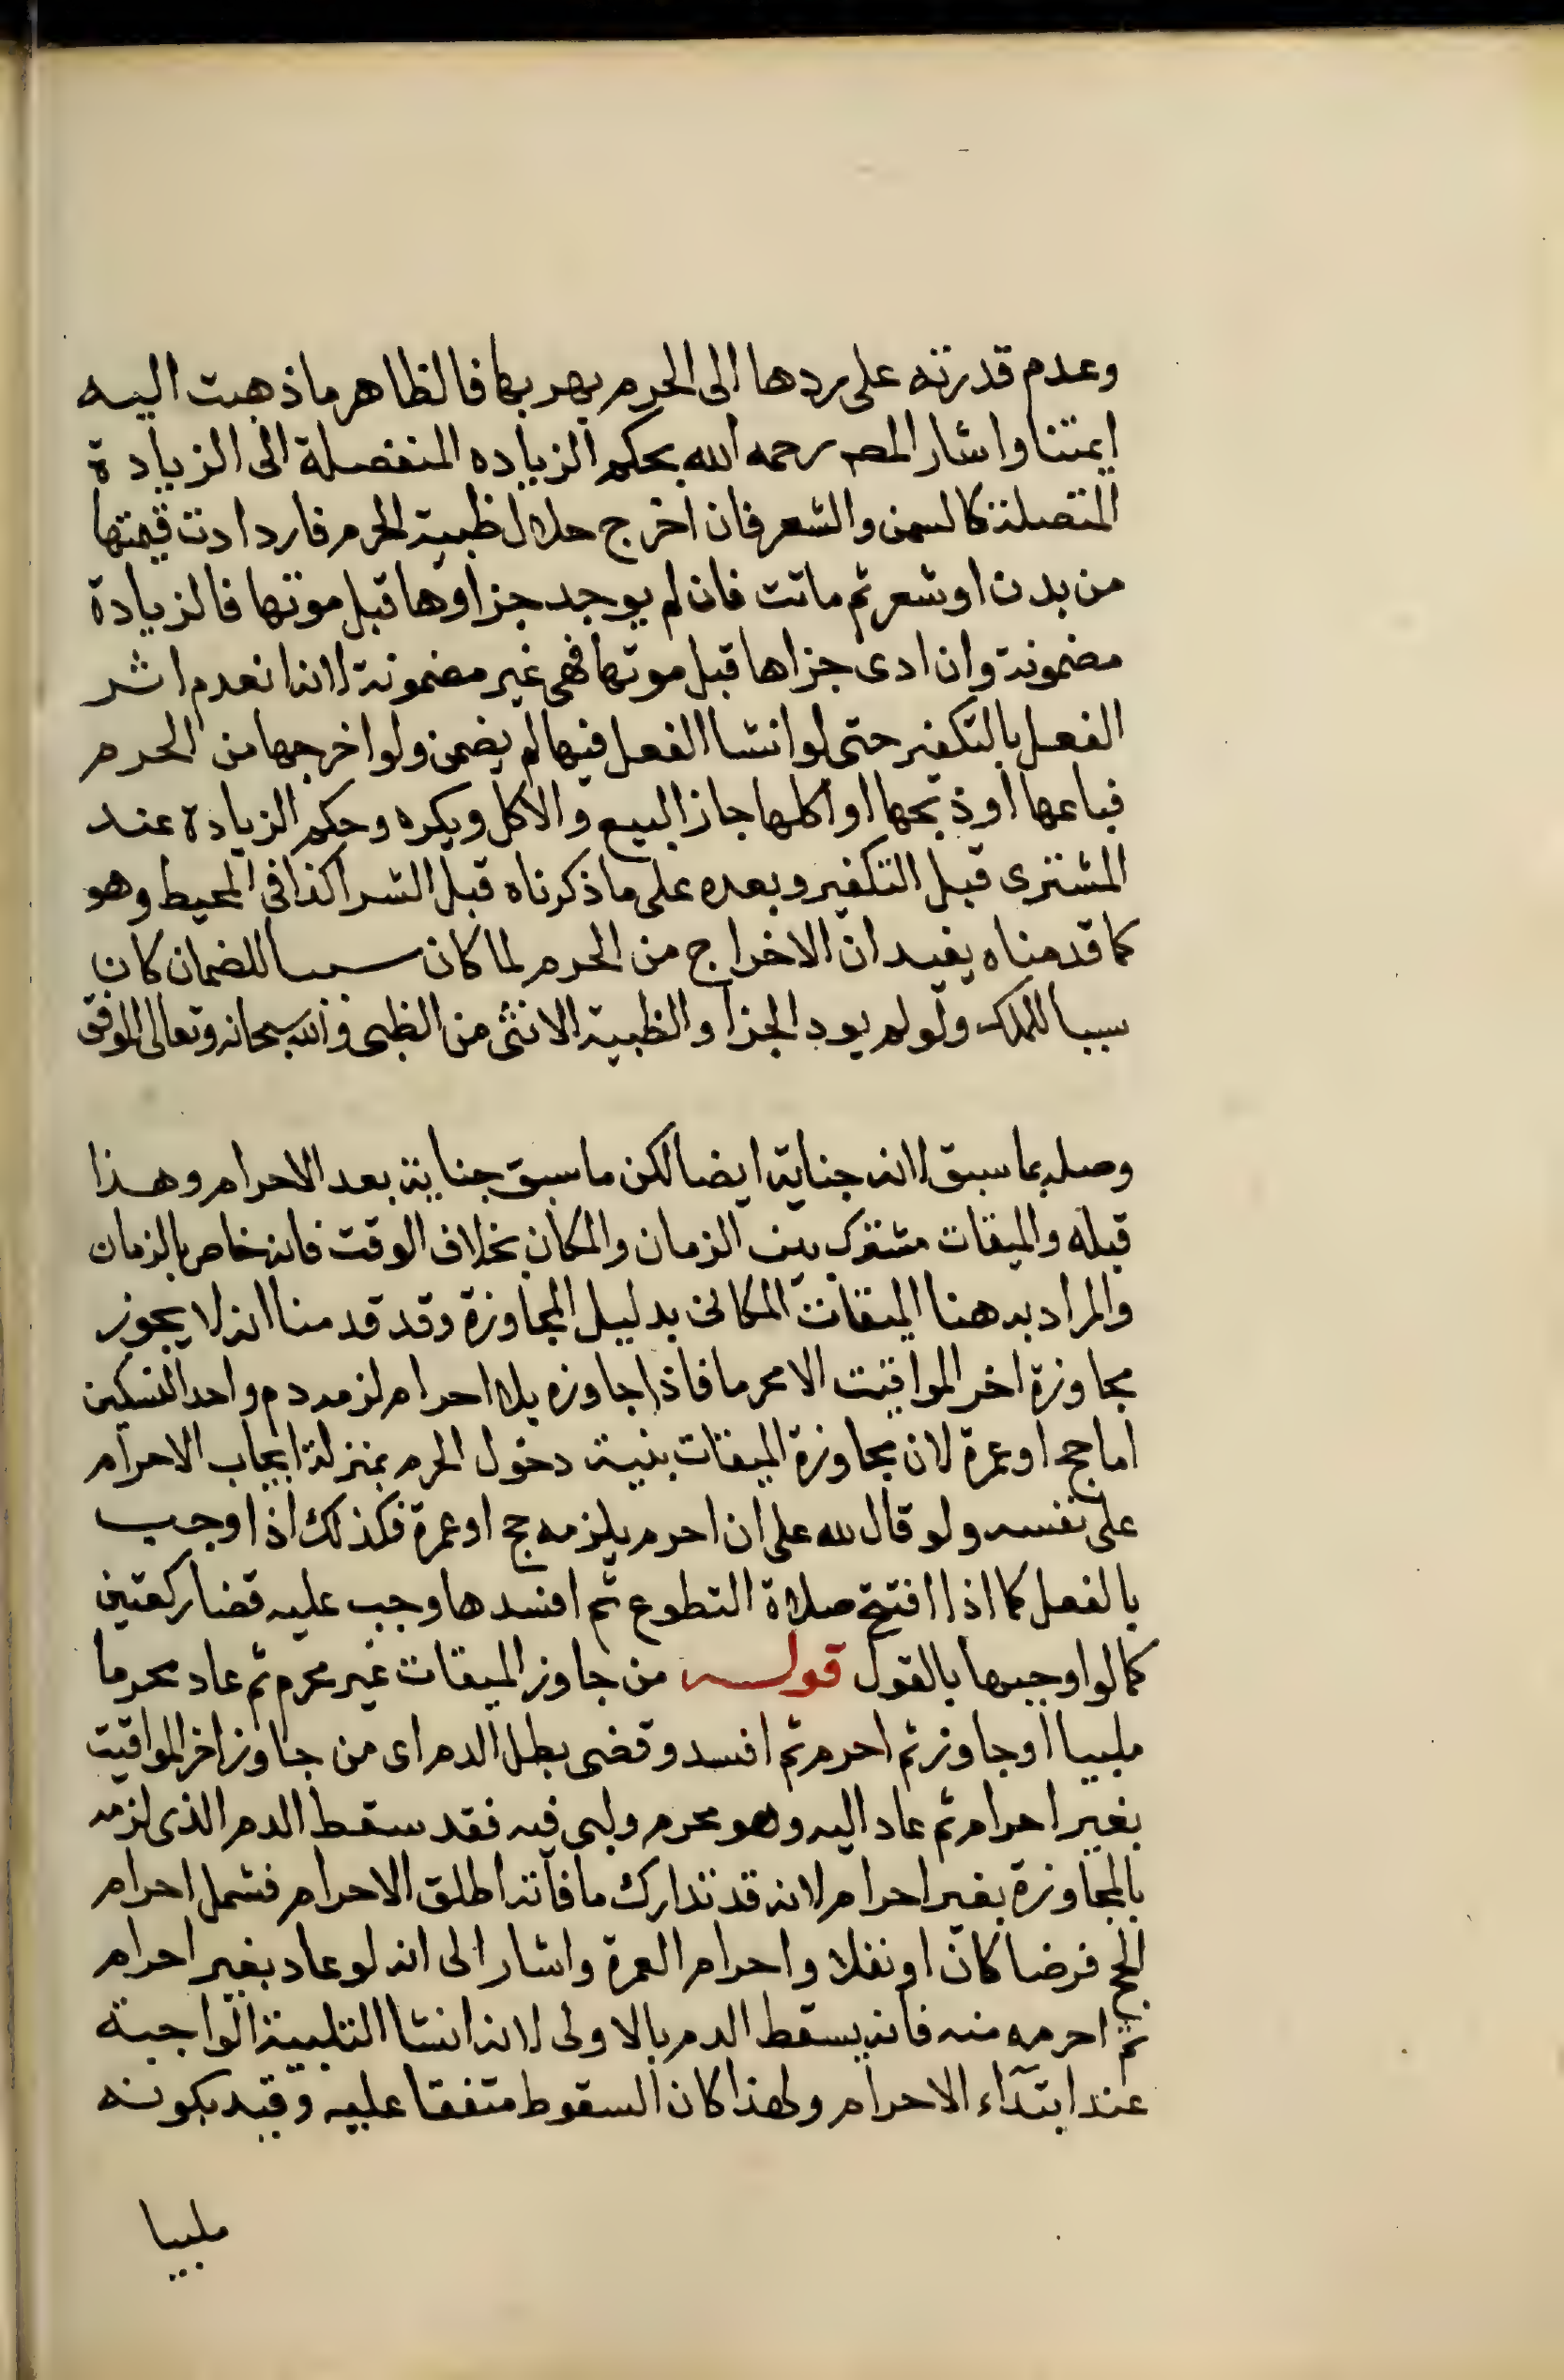 وعدم قدرته على ردها الى الحرم بهربها فالظاهر ما ذهبت اليه
ايمتنا واشار المصـ رحمه الله بحكم الزياده المنفصلة الى الزيادة
المتصلة كالسمن والشعر فان اخرج حلال ظبية الحرم فازدادت قيمتها
من بدن او شعر ثم ماتت فان لم يوجد جزاوها قبل موتها فالزيادة
مضمونة وان ادى جزاها قبل موتها فهى غير مضمونة لانه انعدم اثر
الفعل بالتكفير حتى لو انشا الفعل فيها لم يضمن ولو اخرجها من الحرم
فباعها او ذبحها او اكلها جاز البيع والاكل ويكره وحكم الزيادة عند
المشترى قبل التكفير وبعده على ما ذكرناه قبل الشرا كذا فى المحيط وهو
كما قدمناه يفيد ان الاخراج من الحرم لما كان سببا للضمان كان
سببا للملك ولو لم يود الجزا والظبية الانثى من الظبى والله سبحانه وتعالى الموفق
وصله بما سبق لانه جناية ايضا لكن ما سبق جناية بعد الاحرام وهذا
قبله والميقات مشترك بين الزمان والمكان بخلاف الوقت فانه خاص بالزمان
والمراد به هنا الميقات المكانى بدليل المجاوزة وقد قدمنا انه لا يجوز
مجاوزة اخر المواقيت الا محرما فاذا جاوزه بلا احرام لزمه دم واحد النسكين
اما حج او عمرة لان مجاوزة الميقات بنية دخول الحرم بمنزلة ايجاب الاحرام
على نفسه ولو قال لله على ان احرم يلزمه حج او عمرة فكذلك اذا اوجب
بالفعل كما اذا افتتح صلاة التطوع ثم افسدها وجب عليه قضا ركعتين
كما لو اوجبها بالقول قوله من جاوز الميقات غير محرم ثم عاد محرما
ملبيا او جاوز ثم احرم ثم افسد وقضى بطل الدم اى من جاوز اخر المواقيت
بغير احرام ثم عاد اليه وهو محرم ولبى فيه فقد سقط الدم الذى لزمه
بالمجاوزة بغير احرام لانه قد تدارك ما فاته اطلق الاحرام فشمل احرام
الحج فرضا كان او نفلا واحرام العمرة واشار الى انه لو عاد بغير احرام
ثم احرمه منه فانه يسقط الدم بالاولى لانه انشا التلبية الواجبة
عند ابتدآء الاحرام ولهذا كان السقوط متفقا عليه وقيد بكونه
ملبيا